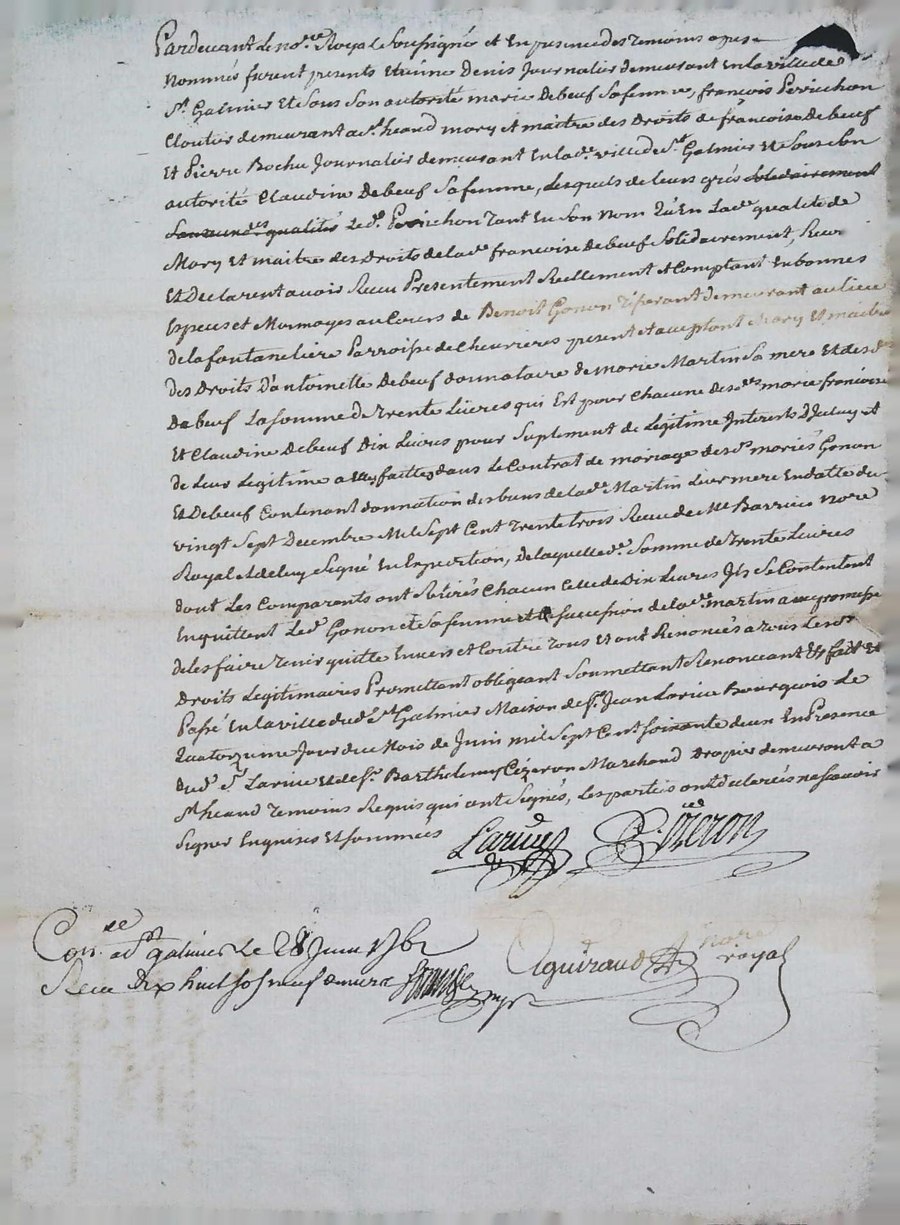 Pardevant le no.re Royal Soussigné et En presence des temoins apres
Nommés furent presents Etienne Denis Journalier demeurant En la ville de
S.t Galmier Et Sous Son autorité marie Debeuf Sa femme, francois Perrichon
Cloutier demeurant a S.t heand mary et maitre des Droits de francoise Debeuf
Et Pierre Bochu Journalier demeurant En lad.e ville de S.t Galmier Et Sous Son
autorité Claudine Debeuf Sa femme, lesquels de leurs grés Solidairement
qualités Led.t Perrichon Tant En Son nom qu'En lad.e qualité de
Mary Et maitre des Droits de lad.e francoise Debeuf Solidairement,
Et Declarent avoir Recu Presentement Reellement et Comptant En bonnes
Especes et Monnoyes au Cours de Benoit Gonon Tisserant demeurant au lieu
de la fontaneliere Parroisse de Chevrieres present et acceptant Mary Et maitre
des Droits D'antoinette Debeuf donnataire de marie Martin Sa mere Et des d.es
Debeuf La Somme de Trente Livres qui Est pour Chacune des d.es marie francoise
Et Claudine Debeuf Dix Livres pour Suplement de Legitime Interets D'Iceluy Et
de Leur Legitime a Elles faittes dans le Contrat de mariage des d.s mariés Gonon
Et Debeuf Contenant donnation des biens de lad.e Martin Leur mere En datte du
vingt Sept Decembre Mil Sept Cent Trente trois Receu de M.e Barrieu Nore
Royal et de luy Signé En Expedition, de laquelle d.e Somme de Trente Livres
dont Les Comparants ont Retirés Chacun Celle de Dix Livres Ils Se Contentent
En quittent Led.t Gonon et Sa femme et la succession de lad.e martin avec promesse
de les faire Tenir quitte Envers et Contre Tous Et ont Renoncés a Tous Leurs
Droits Legitimaires Promettant obligeant Soumettant Renonceant Et fait Et
Passé En la ville dud.t S.t Galmier Maison de S.r Jean Larive Bourgeois Le
Quatorzieme Jour du Mois de Juin mil Sept Cent Soixante deux En Presence
dud.t S.r Larive Et de S.r Barthelemy Cizeron Marchand Drapier demeurant a
S.t heand Temoins Requis qui ont Signés, Les parties ont declarés ne scavoir
Signer Enquises Et sommées
Larive Cizeron
Con.lé a S.t galmier Le 28 Juin 1762
Receu dix huit sols neuf deniers
Aguiraud nore
royal